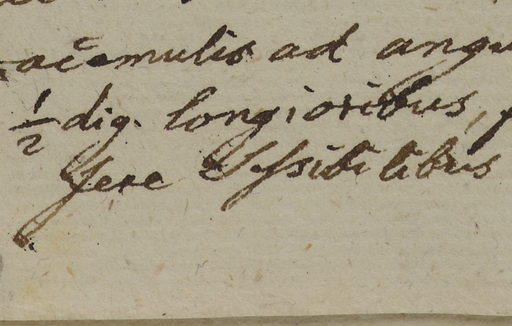 racemulis ad angu
1/2 dig. longioribus,
fere sessibilibus